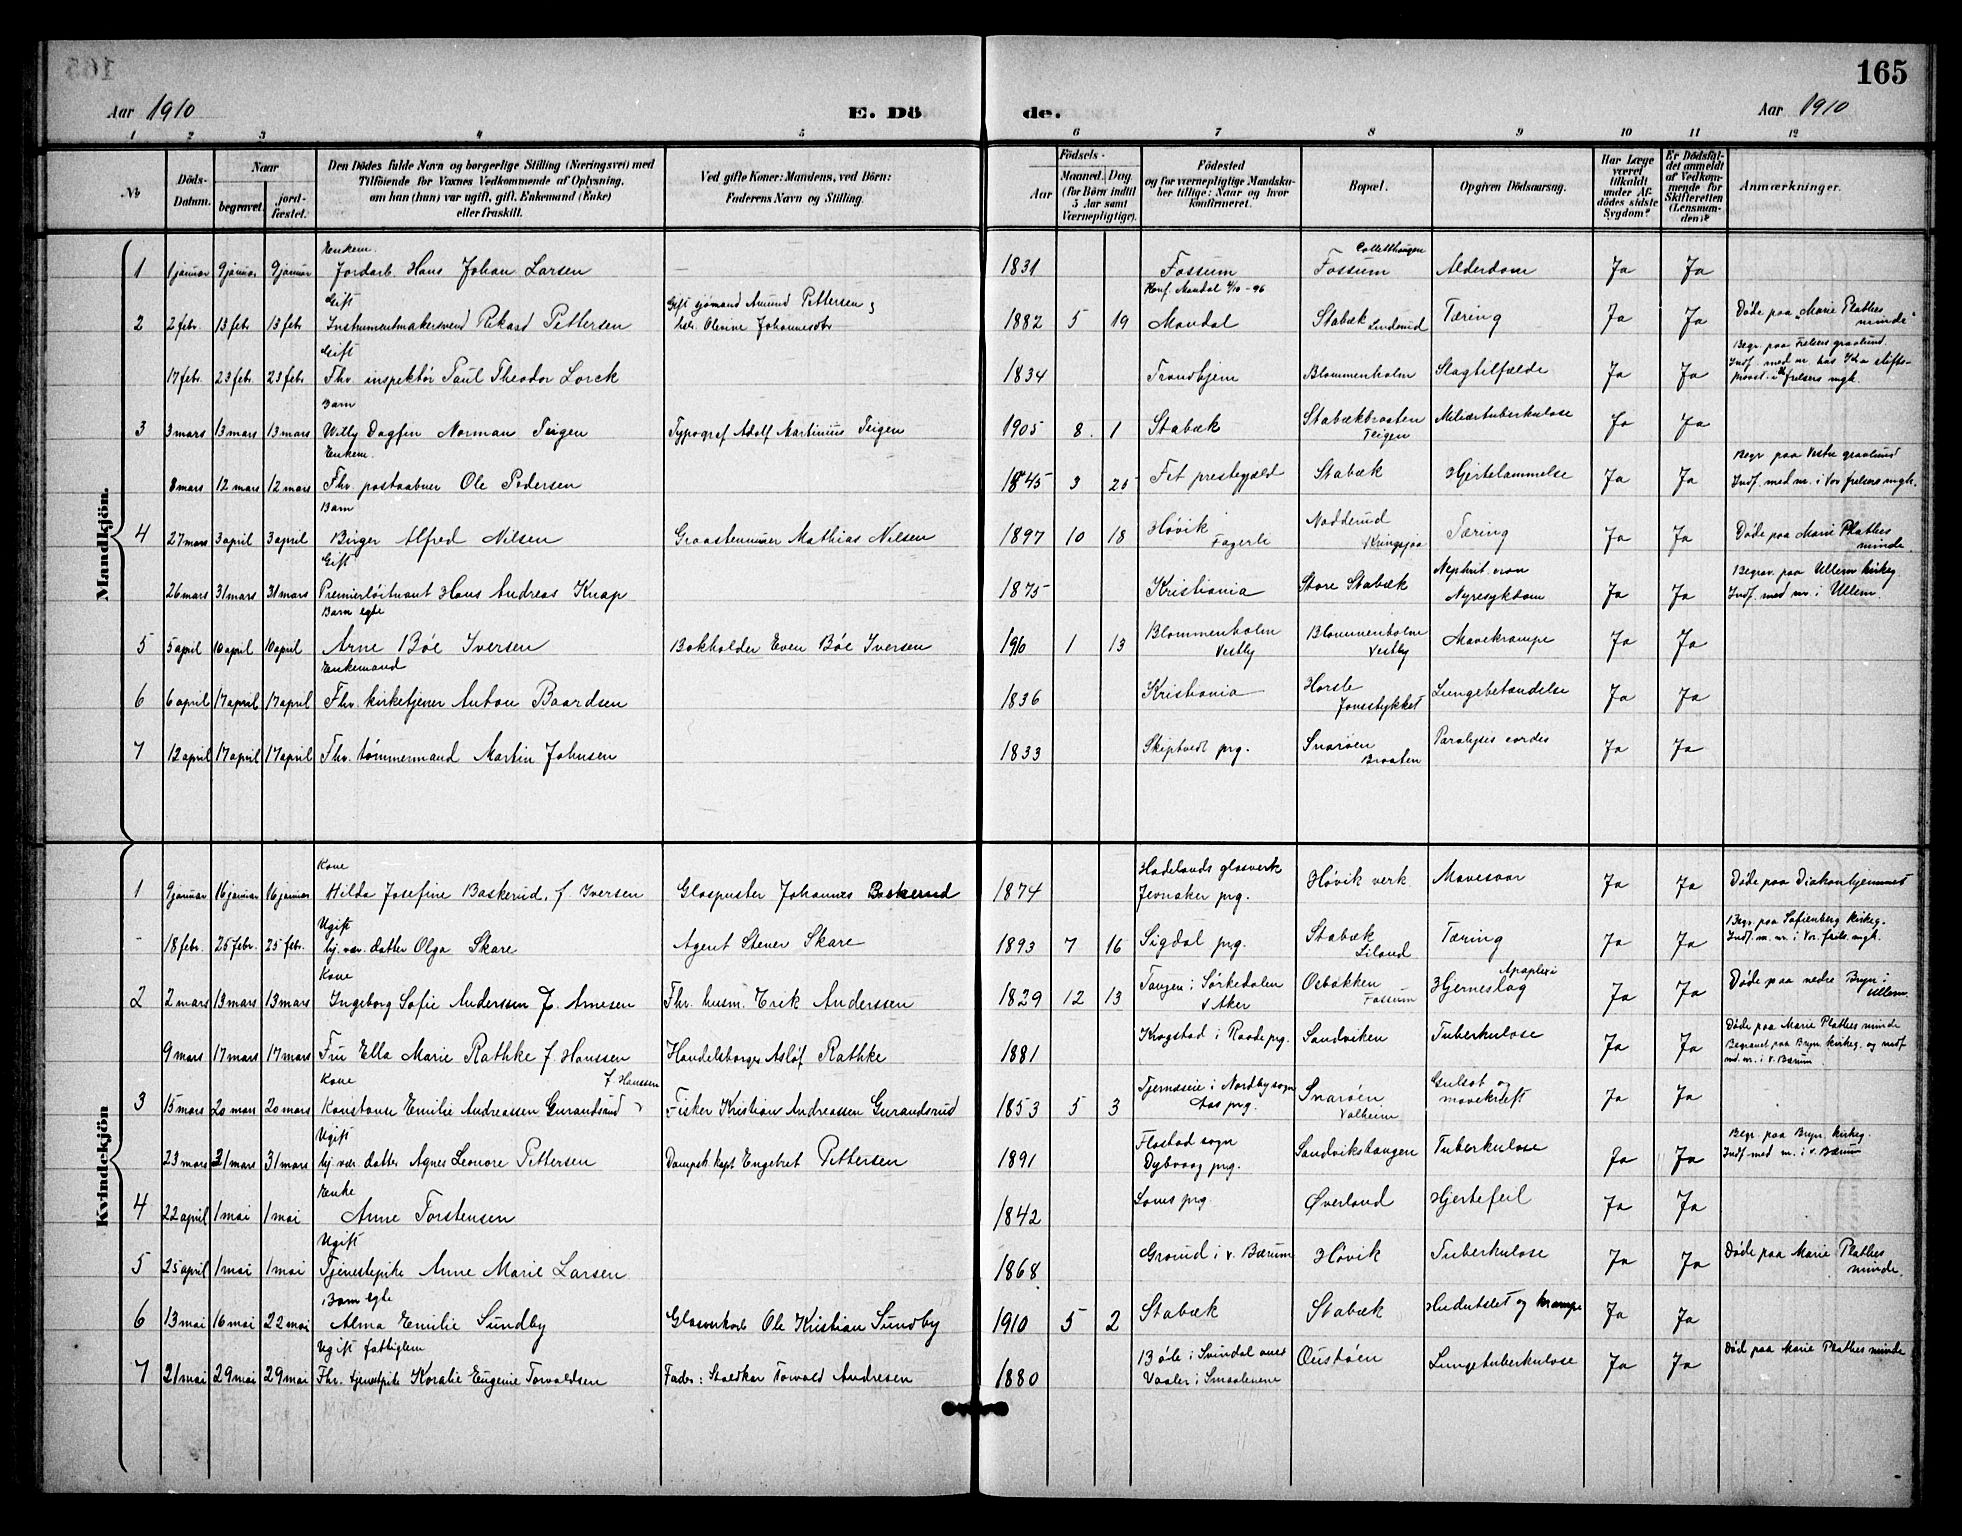 165
Aar 1910
E. Dö de.
Aar 1910
1 2 3 4 5 6 7 8 9 10 11 12
No
Döds-Datum.
Naar
begravet.
jord-fæstet.
Den Dödes fulde Navn og borgerlige Stilling (Næringsvei) med
Tilföiende for Voxnes Vedkommende af Oplysning,
om han (hun) var ugift, gift, Enkemand (Enke)
eller fraskilt.
Ved gifte Koner: Mandens, ved Börn:
Faderens Navn og Stilling.
Födsels-
Aar
Maaned. Dag.
(for Börn indtil
5 Aar samt
Værnepligtige).
Födested
og for værnepligtige Mandska-
ber tillige: Naar og hvor
konfirmeret.
Bopæl.
Opgiven Dödsaarsag.
Har Læge
været
tilkaldt
under Af-
dödes sidste
Sygdom?
Er Dödsfal-
det anmeldt
af Vedkom-
mende for
Skifteretten
(Lensman-
den)?
Anmærkninger.
Mandkjön.
Enkem.
1 1 januar 9 januar 9 januar Jordarb. Hans Johan Larsen — 1831 Fossum Fossum Colletthaugen Alderdom Ja Ja
Gift
2 2 febr 13 febr 13 febr Instrumentmakersvend Rikard Pettersen
Gift sjömand Amund Pettersen
Olevine Johannesdtr
1882 5 19 Konf. Mandal 4/10-96
Mandal Stabæk Linderud Tæring Ja Ja Døde paa "Marie Plathes minde"
Gift
17 febr. 23 febr. 23 febr Fhv. inspektør Paul Theodor Lorck 1834 Trondhjem Blommenholm Slagtilfælde Ja Ja
Begr. paa Frelsers gravlund.
Barn
3 3 mars 13 mars 13 mars Willy Dagfin Norman Teigen Typograf Adolf Martinius Teigen 1905 8 1 Stabæk Stabækbraaten Teigen Miliærtuberkulose Ja Ja
Enkem.
8 mars 12 mars 12 mars Fhv. postaabner Ole Pedersen 1845 3 25 Fet prestegjæld Stabæk Hjertelammelse Ja Ja
Begr paa Vestre gravlund
Indf. med nr. i Vor frelsers mgh.
Barn
4 27 mars 3 april 3 april Birger Alfred Nilsen Graastenminer Mathias Nilsen 1897 10 18 Høvik Fagerli Nadderud Kringsjaa Tæring Ja Ja Døde paa Marie Plathes minde
Gift
26 mars 31 mars 31 mars Premierløitnant Hans Andreas Knap 1875 Kristiania Store Stabæk Nephrit. cron Nyresykdom Ja Ja
Begrav. paa Ullern kirkeg
Indf. med nr. i Ullern.
Barn egte
5 5 april 10 april 10 april Arne Bøe Iversen Bokholder Even Bøe Iversen 1910 1 13 Blommenholm Vestby Blommenholm Vestby Mavekrampe Ja Ja
Enkemand
6 6 april 17 april 17 april Fhv. kirketjener Anton Baardsen 1836 Kristiania Horsle Jonsstykket Lungebetændelse Ja Ja
7 12 april 17 april 17 april Fhv. tømmermand Martin Johnsen 1833 Skiptvedt prg. Snarøen Braaten Paralyses cordes Ja Ja
Kvindekjön
Kone
1 9 januar 16 januar 16 januar Hilda Josefine Baskerud, f. Iversen Glaspuster Johannes Baskerud 1874 Hadelands glasverk
Jevnaker prg. Høvik verk Mavesaar Ja Ja Døde paa Diakonhjemmet
Ugift
18 febr. 25 febr. 25 febr. hj. vær. datter Olga Skare Agent Stener Skare 1893 7 16 Sigdal prg. Stabæk Liland Tæring Ja Ja
Begr. paa Sofienberg kirkeg.
Indf. m. nr. i Vor. frels. mgh.
Kone
2 2 mars 13 mars 13 mars Ingeborg Sofie Anderssen f. Arnesen Fhv. husm. Erik Anderssen 1829 12 13 Tangen i Sørkedalen
V Aker Osbakken Fossum Apoplexi Hjerneslag Ja Ja Døde paa nedre Bryn i Ullern
9 mars 17 mars 17 mars Fru Ella Marie Rathke f. Hanssen Handelsborger Asløf Rathke 1881 Krogstad i Raade prg. Sandviken Tuberkulose Ja Ja
Døde paa Marie Plathes minde
Begravet paa Bryn kirkeg. og indf
md. nr. i V. Bærum
Kone f. Hanssen
3 15 mars 20 mars 20 mars Konstanse Emilie Andreassen Gurandsrud Fisker Kristian Andreassen Gurandsrud 1853 5 3 Tjernæseie i Nordby sogn
Aas prg. Snarøen Valheim Gulsot og mavekræft Ja Ja
Ugift
23 mars 31 mars 31 mars hj. vær. datter Agnes Leonore Pettersen Dampsk. kapt Engebret Pettersen 1891 Flostad sogn
Dybvaag prg. Sandvikshaugen Tuberkulose Ja Ja
Begr. paa Bryn kirkeg.
Indf med nr. i V. Bærum
Enke
4 22 april 1 mai 1 mai Anne Torstensen 1842 Loms prg. Øverland Hjertefeil Ja Ja
Ugift
5 25 april 1 mai 1 mai Tjenestepike Anne Marie Larsen 1868 Grorud i V. Bærum Høvik Tuberkulose Ja Ja Døde paa Marie Plathes minde.
Barn egte
6 13 mai 16 mai 22 mai Alma Emilie Sundby Glasverkarb Ole Kristian Sundby 1910 5 2 Stabæk Stabæk Hudutslet og krampe Ja Ja
Ugift fattiglem
7 21 mai 29 mai 29 mai Fhv. tjenestepike Koralie Eugenie Torvaldsen Fader: Staldkar Torvald Andresen 1880 Bøle i Svindal anex
Vaaler i Smaalenene Oustøen Lungetuberkulose Ja Ja Død paa Marie Plathes minde